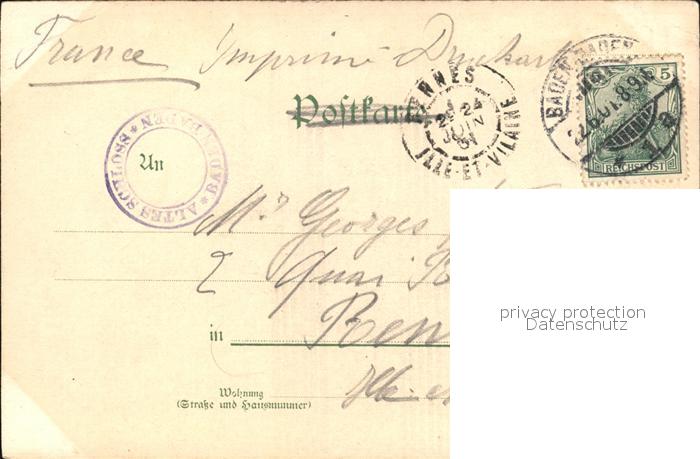 France Imprimé Drucksache
Postkarte
RENNES
24
JUIN
01
ILLE-ET-VILAINE
BADEN-BADEN
22.6.01.8-9N.
1.a
5
REICHSPOST
* ALTES SCHLOSS * BADEN BADEN
An
Mr Georges
2 Quai
in Ren
Ille-et
Wohnung
(Straße und Hausnummer)
privacy protection
Datenschutz